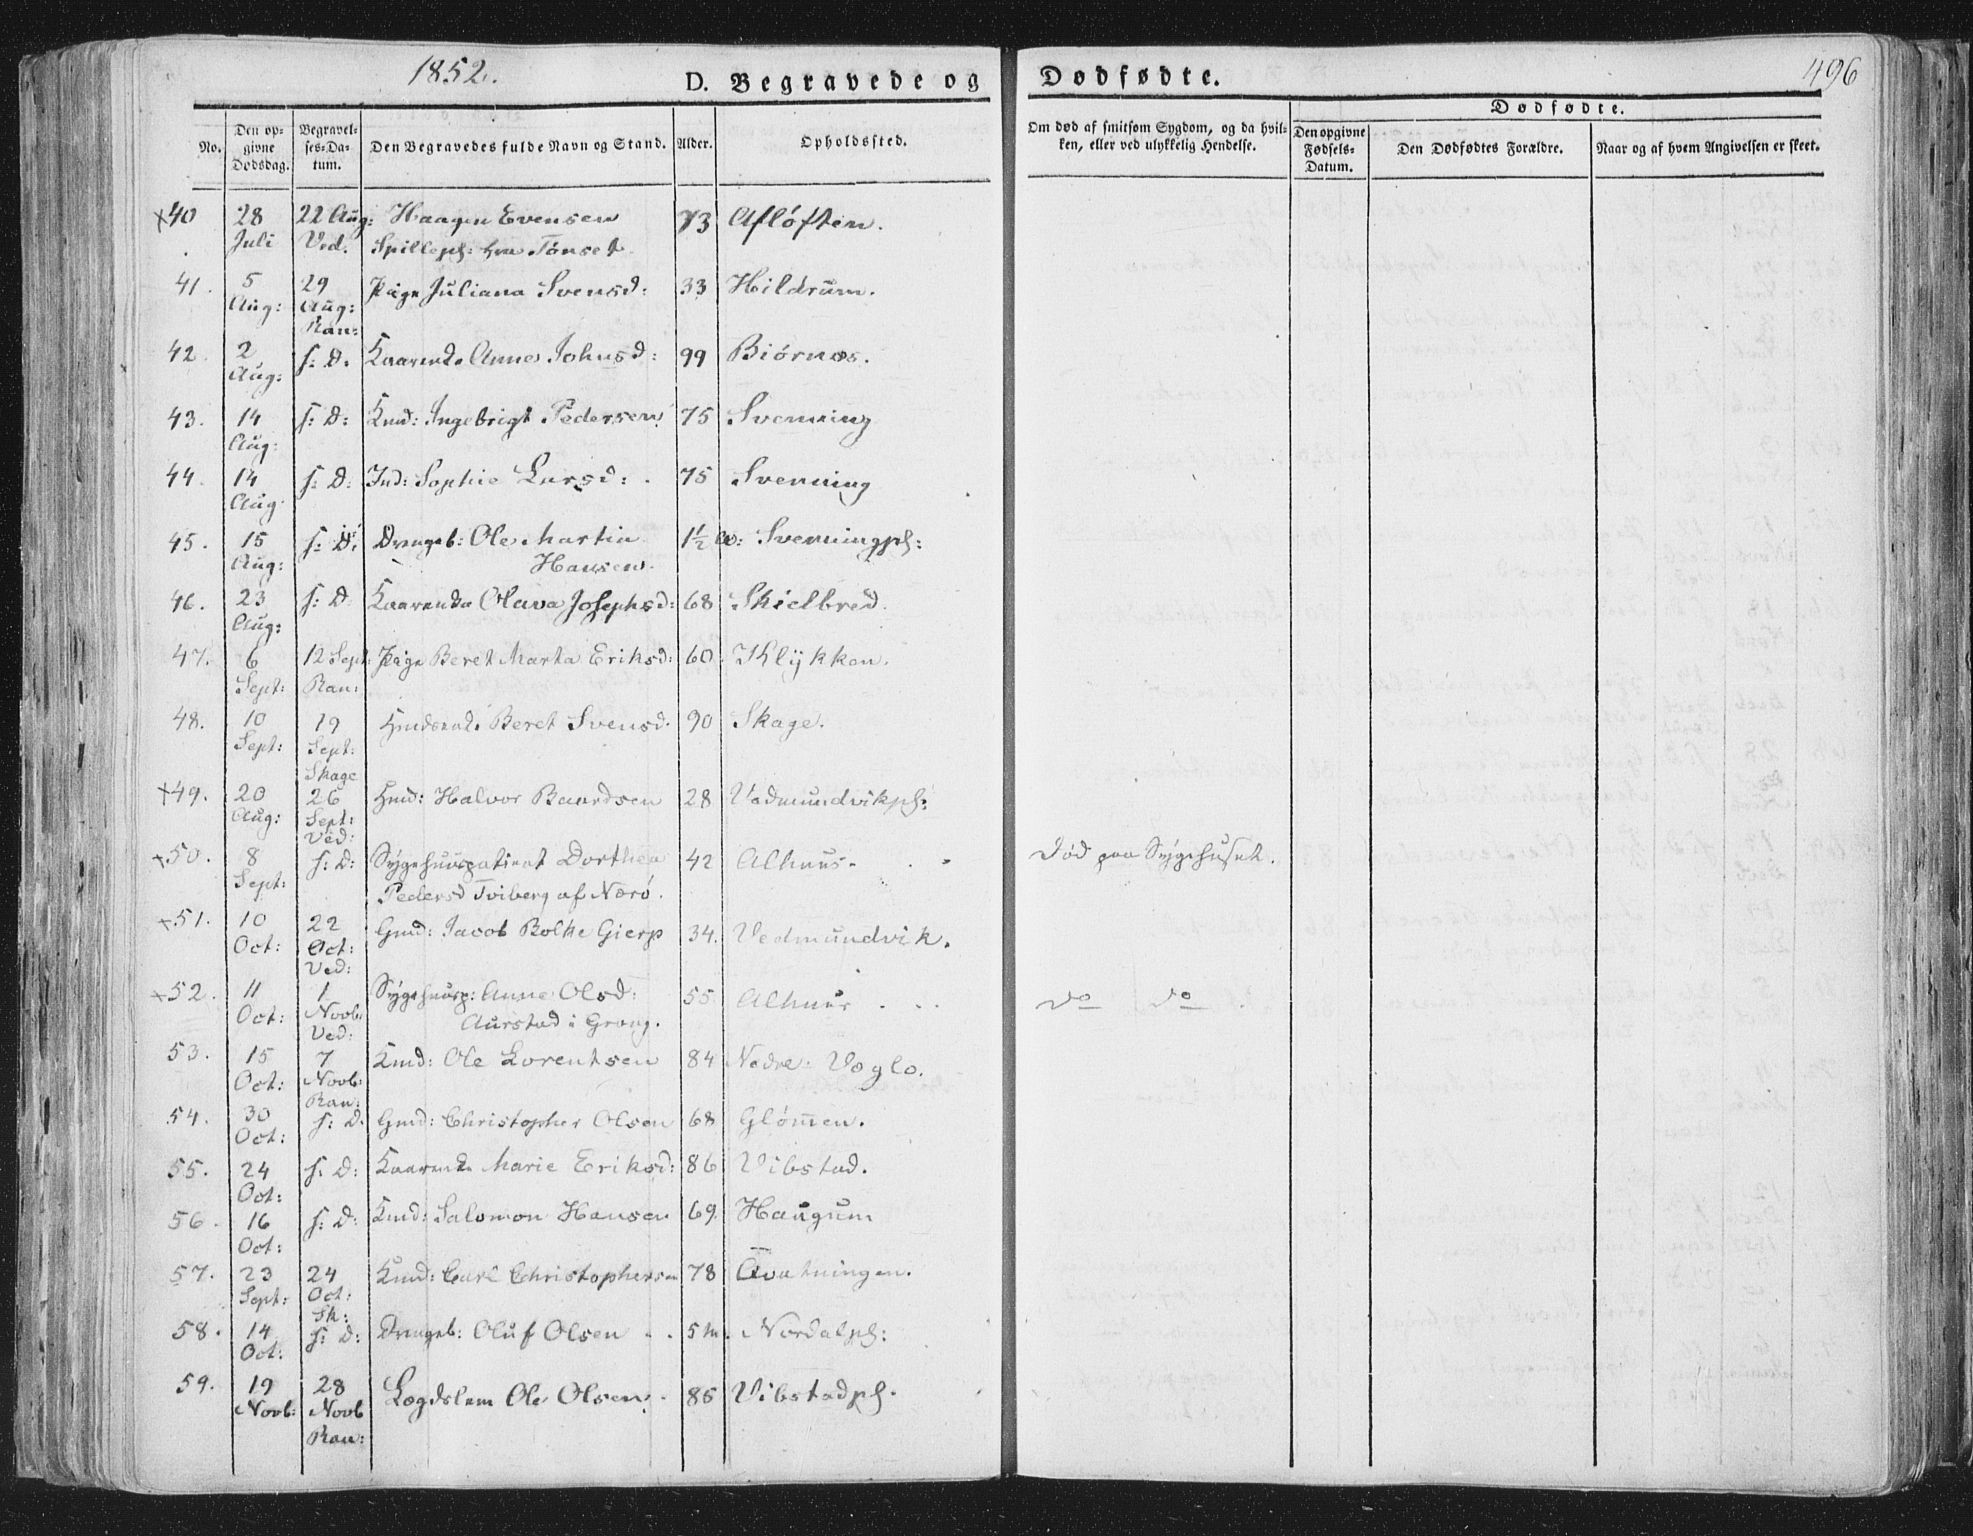 1852.
496
D. Begravede og Dødfødte.
No.
Den opgivne Dødsdag.
Begravelses-Datum.
Den Begravedes fulde Navn og Stand.
Alder.
Opholdssted.
Om død af smitsom Sygdom, og da hvilken, eller ved ulykkelig Hendelse.
Dødfødte.
Den opgivne Fødsels-Datum.
Den Dødfødtes Forældre.
Naar og af hvem Angivelsen er skeet.
×40 28 22 Aug: Haagen Evensen 73 Afløften.
Juli Ved. Spillepl: fra Tønset
41. 5 29 Pige Juliana Svensd: 33 Hildrum.
Aug: Aug:
Ran:
42. 2 s: D. Kaarenke Anne Johnsd: 99 Biörnæs.
Aug:
43. 14 s: D: Kmd: Ingebrigt Pedersen 75 Svenning
Aug:
44. 14 s: D: Ind: Sophie Larsd: 75 Svenning
Aug
45. 15 s: D: Drengeb: Ole Martin 1½ Svenningpl:
Aug: Hansen.
46. 23 s: D. Kaarenke Olava Josephsd: 68 Skielbred.
Aug:
47. 6 12 Sept: Pige Beret Marta Eriksd: 60 Klÿkken.
Sept: Ran:
48. 10 19 Beret Svensd. 90 Skage.
Sept: Sept:
Skage
×49. 20 26 Hmd: Halvor Baardsen 28 Vedmundvikpl:
Aug: Sept:
Ved:
×50. 8 s: D: Sÿgehuuspatient Dorthea 42 Alhuus. Død paa Sÿgehuset.
Sept: Pedersd Tviberg af Nærö.
×51. 10 22 Gmd: Jacob Bolke Gierp 34. Vedmundvik.
Oct: Oct:
Ved:
×52. 11 1 Sÿgehuusp: Anne Olsd: 55 Alhuus do do
Oct: Novb: Aurstad i Grong.
Ved:
53. 15 7 Kmd: Ole Lorentsen 84 Nedre: Væglo.
Oct: Novb:
Ran:
54. 30 s: D. Gmd: Christopher Olsen 68 Glömen.
Oct:
55. 24 s: D: Kaarenke Marie Eriksd: 86 Vibstad.
Oct:
56. 16 s: D: Kmd: Salomon Hansen 69. Haugum
Oct:
57. 23 24 Kmd: Carl Christophersen 78 Qvatningen.
Sept: Oct:
Sk:
58. 14 s: D: Drengeb: Oluf Olsen 5 m. Nordalpl:
Oct:
59. 19 28 Lægdslem Ole Olsen 86 Vibstadpl.
Novb: Novb
Ran: